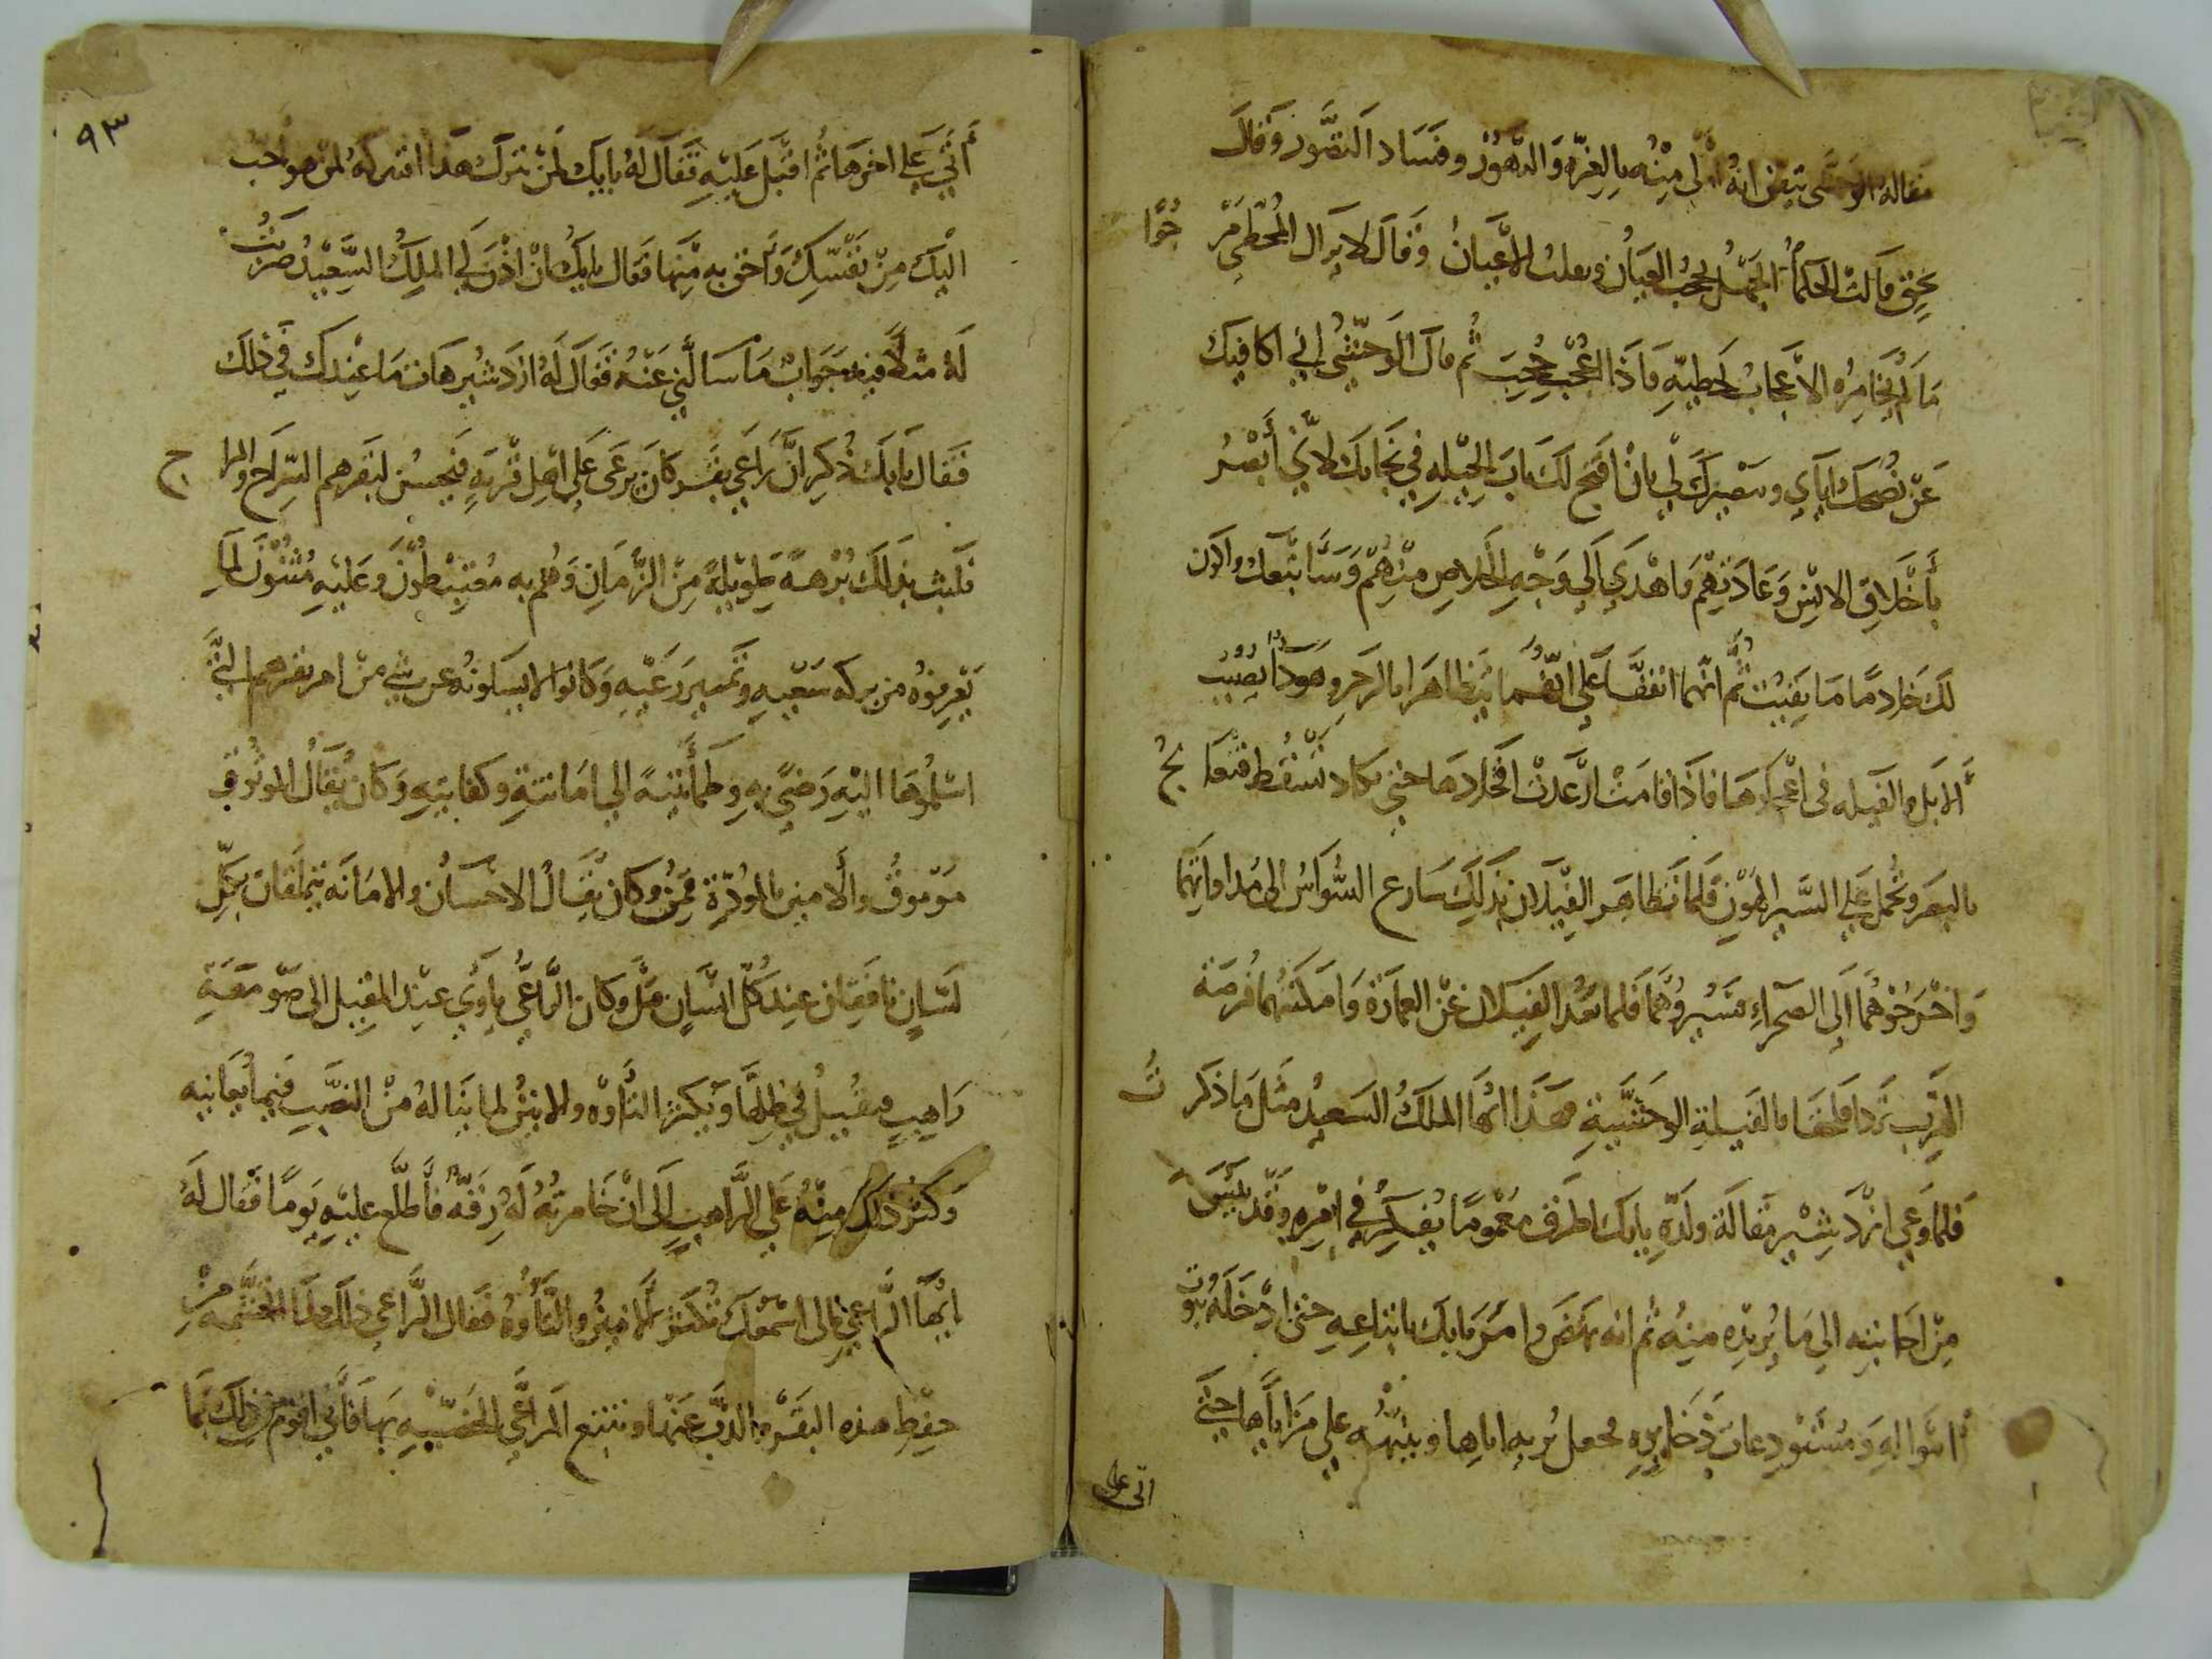 مقالة الوحشى تيقن انهُ اولى مِنْه بالغِرّه وَالتهوُّر وفساد التصَّور وَقال
بحق قالت الحكما الجهل يحجُب العيان ويقلب الاعيانُ وَقالَ لا يزال المخطى مرجُوًّا
مَا لم يخَامرُه الاعجابُ بخطيّهِ فَاذا اعُجب حُجِبَ ثُم قال الوحشى اني اكافيك
عَن نُصحك اياي وتبصيرك لي بان افتح لك باب الحيله في نجاتك لاني أبصرُ
بأخلاق الانس وعَادتهم واهدي الى وجه الخلاص منهم وسَاتبعك واكون
لك خادمًا ما بقيت ثم انهما اتفقا على انهما يتظاهرا بالزحر وهو دَاءٌ يصيب
الابل والفيله في اعجازها فاذا قامت ارعدت افخاذها حتى تكاد تسقط فتعالج
بالبعر وتحمل على السير الهون فلما تظاهر الفيلان بذلك سارع السُّواس الى مداواتهما
وَاخرجوهُما الى الصحراءِ فسيرُوهما فلما بعد الفيلان عن العمارة وامكنتهما فرصة
الهرب ندا فلحقا بالفيلة الوحشية فهذا ايها الملك السعيد مثل ما ذكرتُ
فلما وَعي ازدشير مقالة ولده بابك اطرق مغمومًا يفكر في امره وقد يئس
من اجابته الى ما يُريده منه ثم انه نهض وامر بابك باتباعه حتى ادخله بيوت
امواله ومستودعات ذخايره فجعل يُريه اياها وينبهُه على مزاياها حتى
اتى على
٩٣
أتي على اخرها ثم اقبل عليه فقال له يابابك لمن نترك هذا اتتركه لمن هو احب
اليك من نفسك واحق به منها فقال بابك ان اذن لي الملك السعيد ضربتُ
له مثلاً فيه جواب ما سالني عنه فقال له ازدشير هات ما عندك في ذلك
فقال بابك ذُكر ان راعي بقر كان يرعى على اهل قريه فيحسن لبقرهم السراح والمراح
فلبث بذلك بُرهةً طويلةً من الزمان وهم به مغتبطون وعليه مُثنون لما
يعرفوه من بركه سعيه وتميير رعيه وكانوا لا يسالونه عن شيء من امر بقرهم التي
اسلموها اليه رضىً به وطمأنينةً الى امانته وكفايته وكان يُقال الموثوق
موموق والامين بالمودة قمن وكان يُقال الاحسان والامانه يتملقان بكل
لسان نافقان عند كل انسان وكان الراعي ياوي عند المقيل الى صومعة
راهب فيقيل في ظلها ويكثر التاوه والانين لما يناله من النصب فيما يعانيه
وكثر ذلك منه على الراهب الى ان خامرته له رقّه فاطلع عليه يومًا فقال له
ايها الراعي مالى اسمعك تكثر الانين والتاوه فقال الراعي ذلك لما اتجشمه من
حفظ هذه البقر والذب عنها وتتبع المراعي الخصبه بها فاني اقوم من ذلك بما